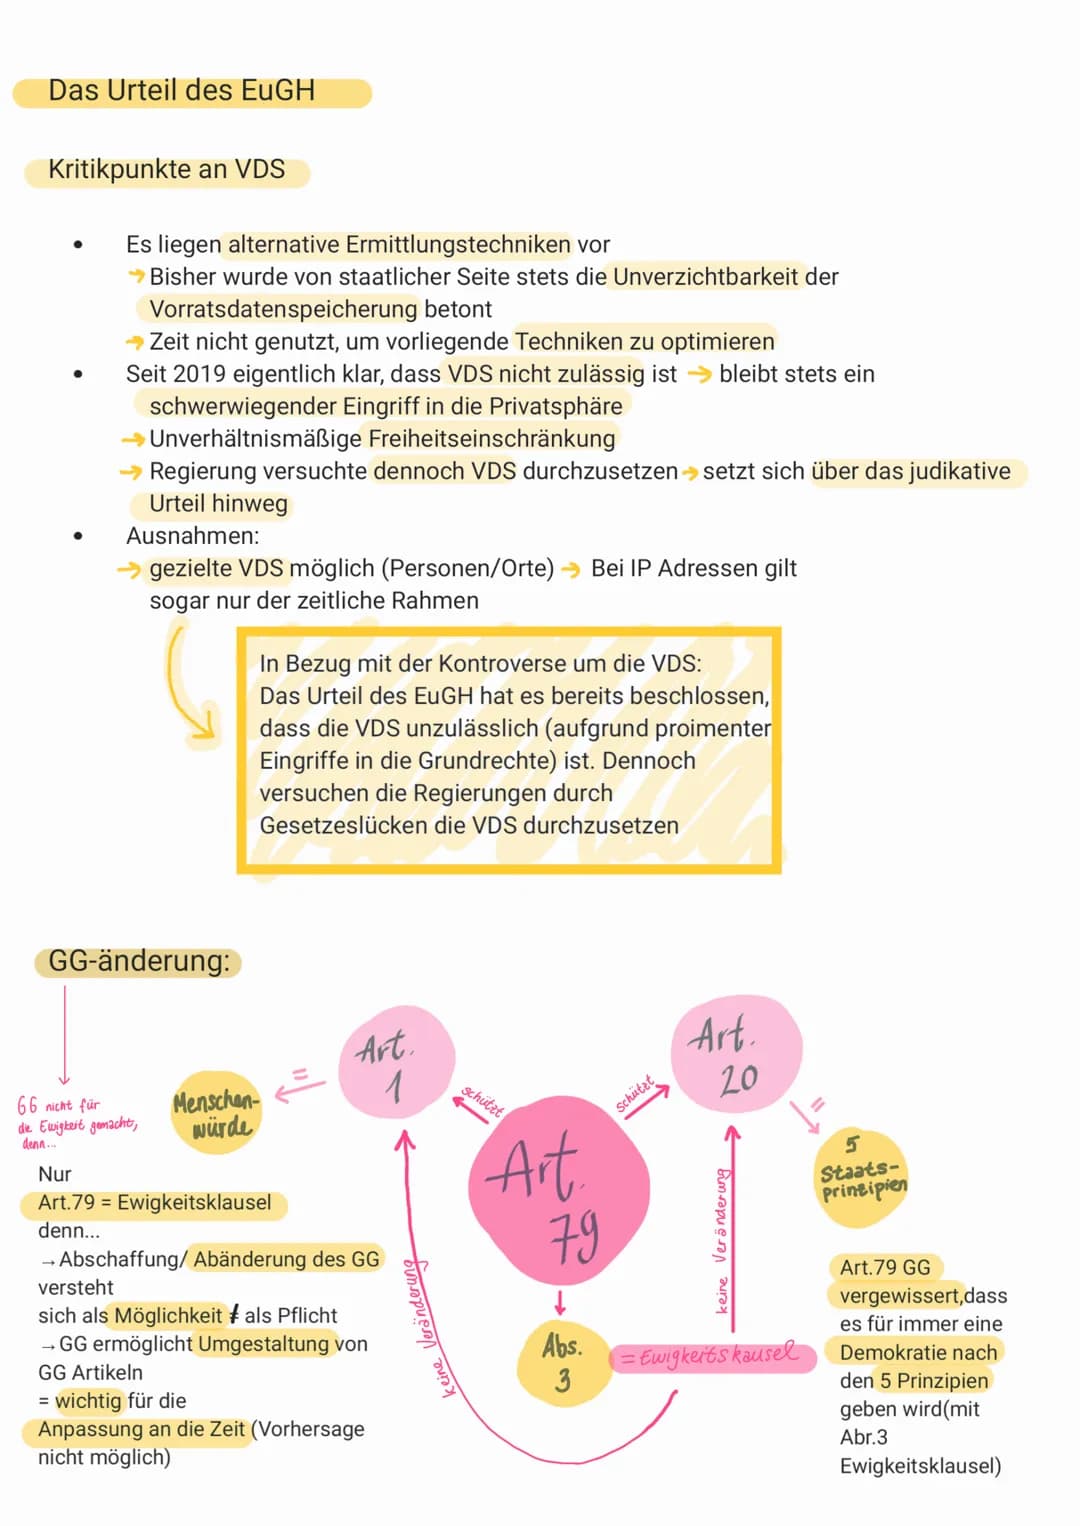 Das Urteil des EuGH
Kritikpunkte an VDS
• Es liegen alternative Ermittlungstechniken vor
→ Bisher wurde von staatlicher Seite stets die Unverzichtbarkeit der
Vorratsdatenspeicherung betont
→ Zeit nicht genutzt, um vorliegende Techniken zu optimieren
• Seit 2019 eigentlich klar, dass VDS nicht zulässig ist → bleibt stets ein
schwerwiegender Eingriff in die Privatsphäre
→ Unverhältnismäßige Freiheitseinschränkung
→ Regierung versuchte dennoch VDS durchzusetzen → setzt sich über das judikative
Urteil hinweg
• Ausnahmen:
→ gezielte VDS möglich (Personen/Orte) → Bei IP Adressen gilt
sogar nur der zeitliche Rahmen
In Bezug mit der Kontroverse um die VDS:
Das Urteil des EuGH hat es bereits beschlossen,
dass die VDS unzulässlich (aufgrund proimenter
Eingriffe in die Grundrechte) ist. Dennoch
versuchen die Regierungen durch
Gesetzeslücken die VDS durchzusetzen
GG-änderung:
GG nicht für
die Ewigkeit gemacht,
denn...
Nur
Art.79 = Ewigkeitsklausel
denn...
→ Abschaffung/ Abänderung des GG
versteht
sich als Möglichkeit ≠ als Pflicht
→ GG ermöglicht Umgestaltung von
GG Artikeln
= wichtig für die
Anpassung an die Zeit (Vorhersage
nicht möglich)
Menschen-
würde
=
Art.
1
schützt
Art.
79
schützt
Art.
20
=
5
Staats-
prinzipien
keine Veränderung
keine Veränderung
Abs.
3
= Ewigkeitskausel
Art.79 GG
vergewissert,dass
es für immer eine
Demokratie nach
den 5 Prinzipien
geben wird(mit
Abr.3
Ewigkeitsklausel)